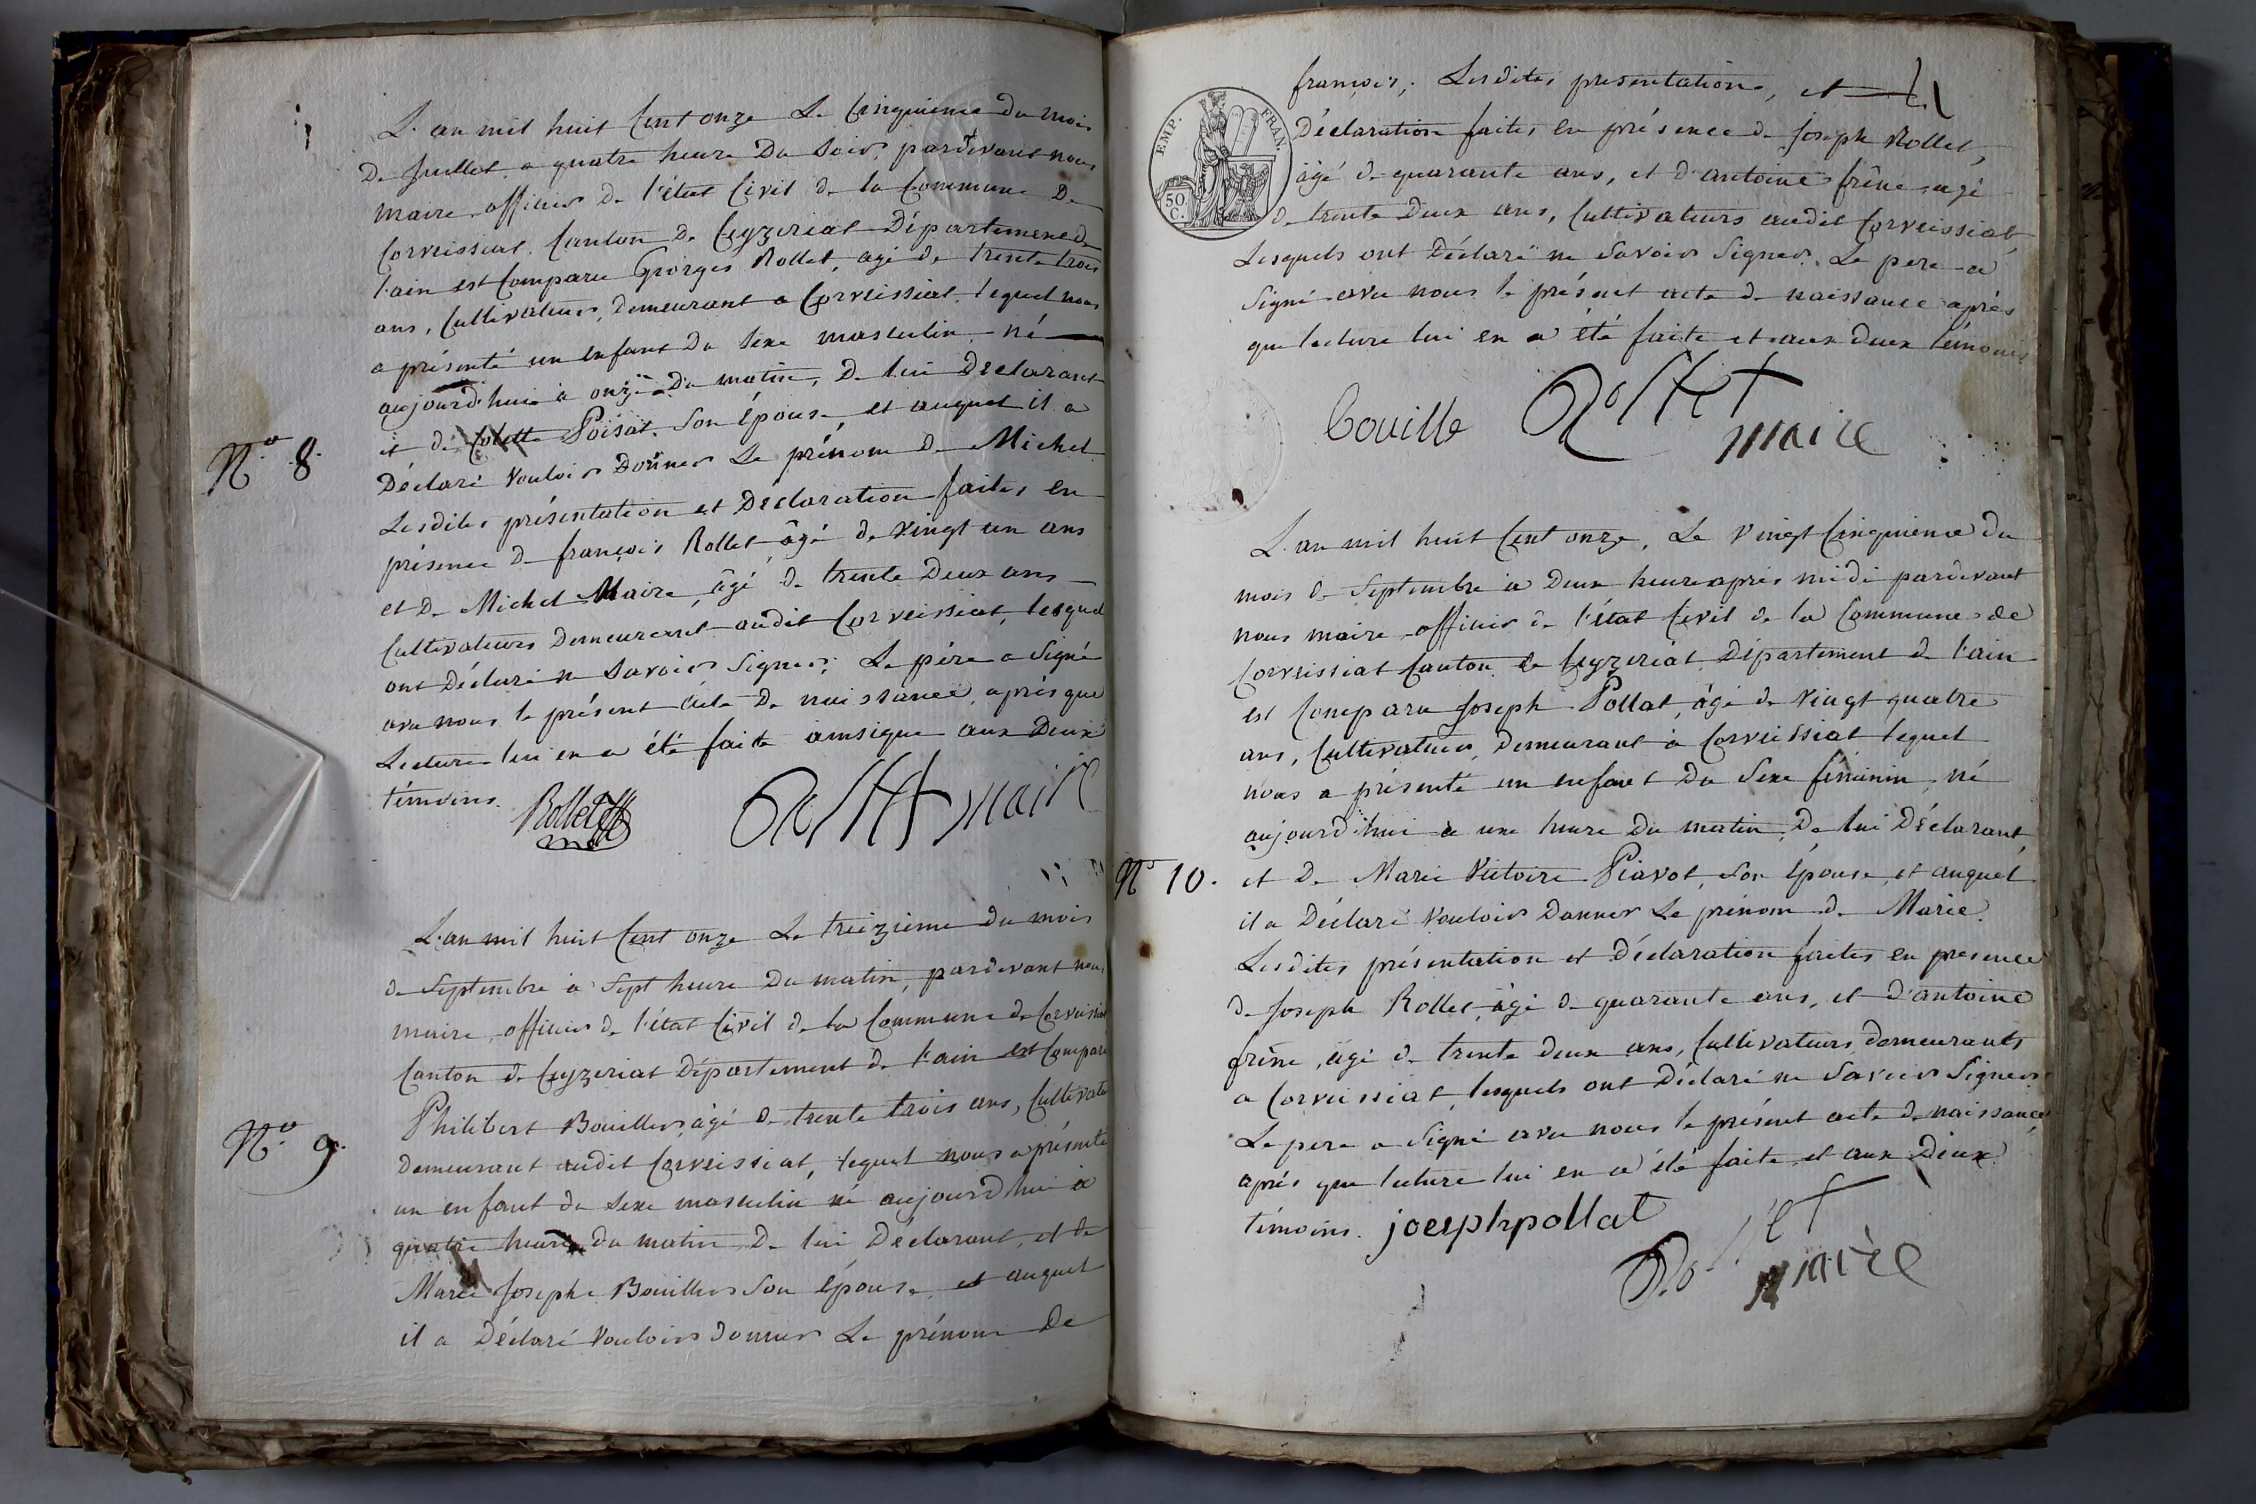 L'an mil huit Cent onze Le Cinquieme du mois
De Juillet a quatre heure Du Soir, pardevant nous
maire officier De l'état Civil de la Commune De
Corveissiat, Canton De Ceyzeriat Département de
l'ain est Comparu Georges Rollet, agé de trente trois
ans, Cultivateur, Demeurant a Corveissiat, lequel nous
a présenté un enfant Du Sexe masculin né
aujourd'hui à onze Du matin, De lui Déclarant
N.o 8.
et de Colette Poisat Son épouse et auquel il a
Déclaré Vouloir Donner Le prénom De Michel
Lesdites présentation et Déclaration faites en
présence De françois Rollet âgé de Vingt un ans
et De Michel Maire, âgé de trente Deux ans
Cultivateurs Demeurant audit Corveissiat, lesquel
ont Déclaré ne Savoir Signer; Le pére a Signé
avec nous le présent acte De naissance, aprés que
Lecture lui en a été faite ainsique aux Deux
témoins.
Rollet
Rollet maire
L'an mil huit Cent onze Le treizieme du mois
de Septembre à Sept heure Du matin, pardevant nous
maire, officier de l'état Civil de la Commune de Corveissiat
Canton de Ceyzeriat Département de l'ain est Comparu
N.o 9.
Philibert Bouiller, âgé de trente trois ans, Cultivate
Demeurant audit Corveissiat, lequel nous a présenté
un enfant du Sexe masculin né aujourd'hui à
quatre heure du matin De lui Déclarant, et de
Marie Josephe Bouiller Son épouse, et auquel
il a Déclaré Vouloir donner Le prénom De
françois; Lesdites presentation, et
EMP. FRAN.
50 C.
Déclaration faites en présence de Joseph Rollet,
âgé de quarante ans, et d'antoine frêne agé
de trente Deux ans, Cultivateurs audit Corveissiat
Lesquels ont Déclaré ne Savoir Signer. Le pere a
Signé avec nous le présent acte de naissance aprés
que lecture lui en a été faite et aux Deux témoins
bouille Rollet
maire
L'an mil huit Cent onze, Le Vingt Cinquieme du
mois de Septembre à Deux heure aprés midi pardevant
nous maire officier de l'état Civil de la Commune de
Corveissiat Canton de Ceyzeriat, Département de l'ain
est Comparu Joseph Pollat, âgé de Vingt quatre
ans, Cultivateur, Demeurant à Corveissiat lequel
nous a présenté un enfant Du Sexe féminin, né
aujourd'hui à une heure Du matin De lui Déclarant,
N.o 10.
et De Marie Victoire Piavot, Son épouse, et auquel
il a Déclaré Vouloir Donner Le prénom de Marie.
Lesdites présentation et Déclaration faites en presence
de Joseph Rollet, âgé de quarante ans, et d'antoine
frêne, âgé de trente deux ans, Cultivateurs demeurants
a Corveissiat, lesquels ont Déclaré ne Savoir Signer
Le pere a Signé avec nous le présent acte de naissance
aprés que lecture lui en a été faite et aux Deux
témoins. joesphpollat
Rollet
maire